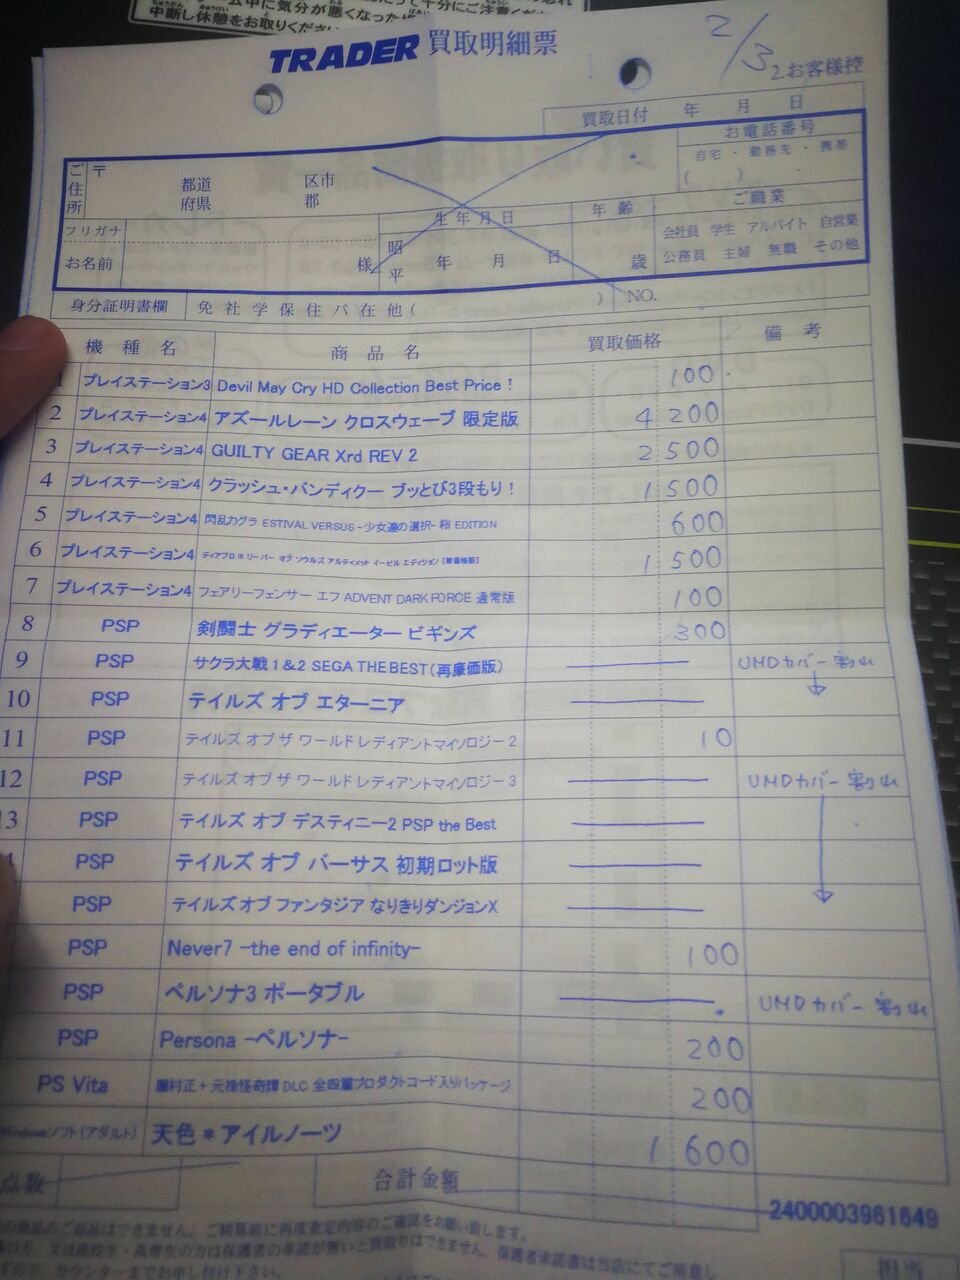 中断し休憩をお取りください
TRADER 買取明細票
2/3
2.お客様控
買取日付 年 月 日
ご住所 〒 都道府県 区市郡
お電話番号
自宅・勤務先・携帯
( )
フリガナ
お名前 様
生年月日
昭
平 年 月 日
年齢
歳
ご職業
会社員 学生 アルバイト 自営業
公務員 主婦 無職 その他
身分証明書欄 免 社 学 保 住 パ 在 他( ) NO.
機種名 商品名 買取価格 備考
1 プレイステーション3 Devil May Cry HD Collection Best Price! 100
2 プレイステーション4 アズールレーン クロスウェーブ 限定版 4 200
3 プレイステーション4 GUILTY GEAR Xrd REV 2 2 500
4 プレイステーション4 クラッシュ・バンディクー ブッとび3段もり! 1 500
5 プレイステーション4 閃乱カグラ ESTIVAL VERSUS -少女達の選択- 桜 EDITION 600
6 プレイステーション4 ディアブロ III リーパー オブ ソウルズ アルティメット イービル エディション [新価格版] 1 500
7 プレイステーション4 フェアリーフェンサー エフ ADVENT DARK FORCE 通常版 100
8 PSP 剣闘士 グラディエーター ビギンズ 300
9 PSP サクラ大戦1&2 SEGA THE BEST(再廉価版) UMDカバー割れ
10 PSP テイルズ オブ エターニア ↓
11 PSP テイルズ オブ ザ ワールド レディアントマイソロジー2 10
12 PSP テイルズ オブ ザ ワールド レディアントマイソロジー3 UMDカバー割れ
13 PSP テイルズ オブ デスティニー2 PSP the Best
PSP テイルズ オブ バーサス 初期ロット版
PSP テイルズ オブ ファンタジア なりきりダンジョンX
PSP Never7 -the end of infinity- 100
PSP ペルソナ3 ポータブル UMDカバー割れ
PSP Persona -ペルソナ- 200
PS Vita 朧村正+元禄怪奇譚DLC 全四篇プロダクトコード入りパッケージ 200
Windowsソフト(アダルト) 天色*アイルノーツ 1 600
点数 合計金額
2400003961649
の商品のご返品はできません。ご精算前に再度査定内容のご確認をお願い致します。
の方、又は高校生・高専生の方は保護者の承諾が無いと買取りはできません。保護者承諾書は当店にてご用意し
ますので、カウンターまでお申し付け下さい。
担当